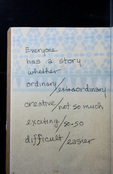 Everyone
has a story
whether
ordinary/extraordinary
creative/not so much
exciting/so-so
difficult/easier